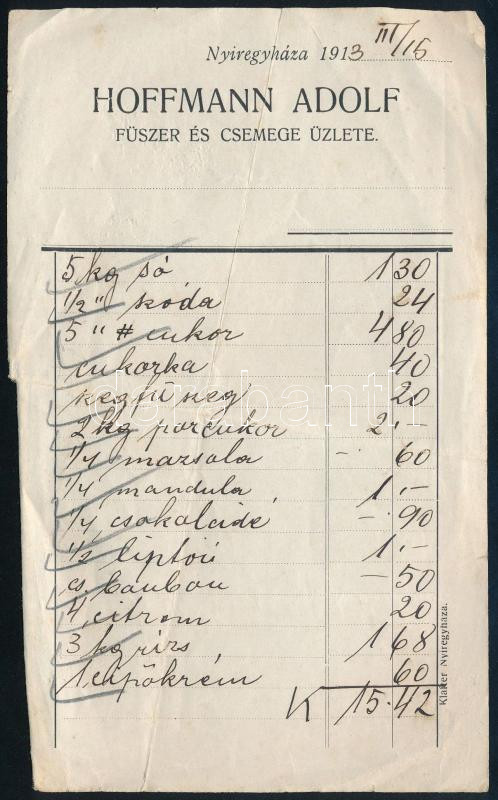 Nyiregyháza 1913 III/15
HOFFMANN ADOLF
FÜSZER ÉS CSEMEGE ÜZLETE.
5 kg só 1 30
1/2 " skóda 24
5 " # cukor 4 80
cukorka 40
20
2 kg porcukor 2.–
1/4 mazsola –. 60
1/4 mandula 1.–
1/4 csokoládé –. 90
1/2 liptói 1.–
cs. bonbon – 50
4 citrom 20
3 kg rizs 1 68
1 cipőkrém 60
K 15.42
Klafter Nyiregyháza.
darabanth